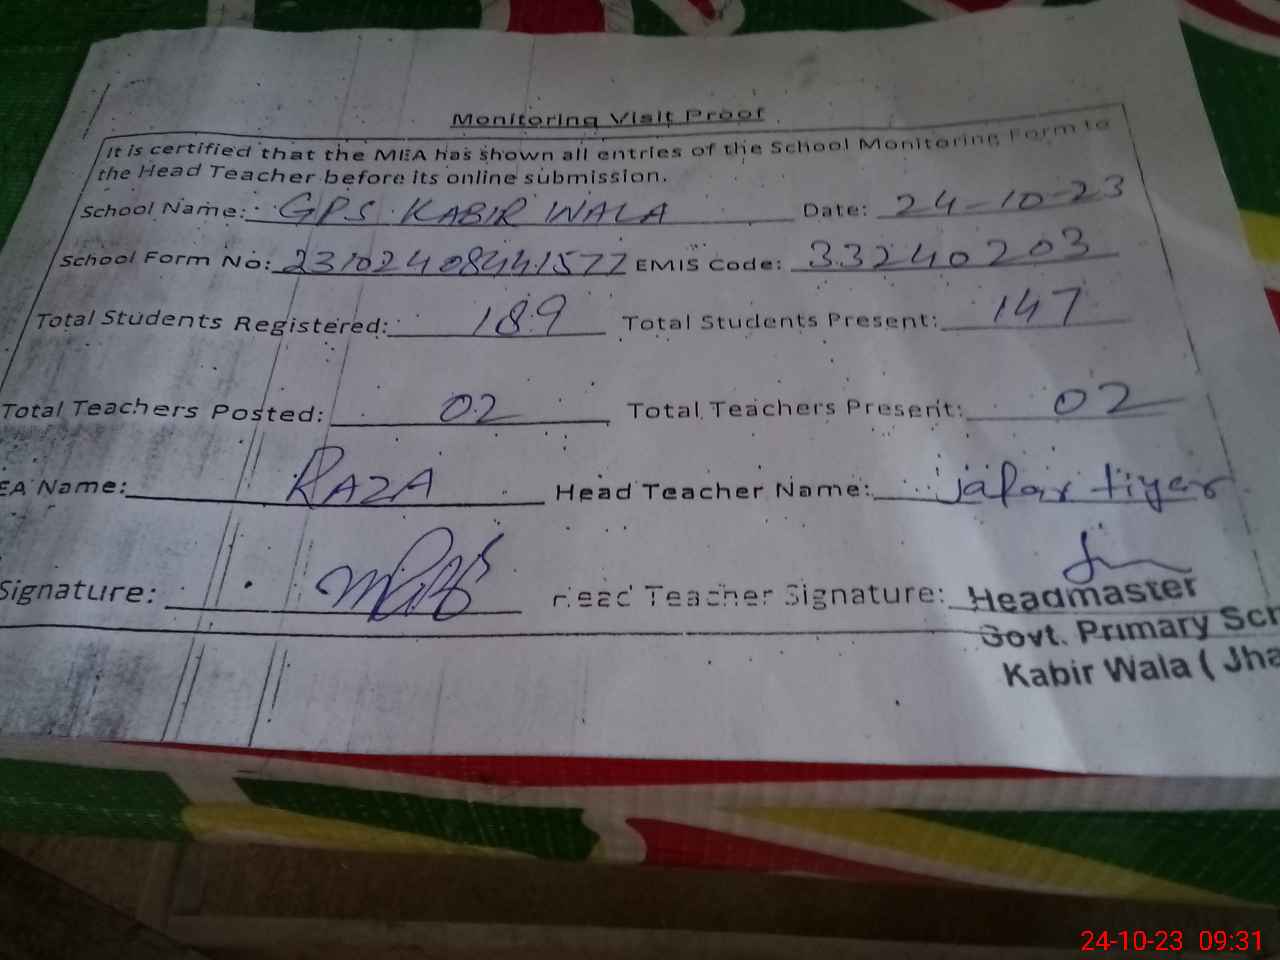 Monitoring Visit Proof
It is certified that the MEA has shown all entries of the School Monitoring Form to
the Head Teacher before its online submission.
School Name: GPS KABIR WALA Date: 24-10-23
School Form No: 231024084441577 EMIS Code: 33240203
Total Students Registered: 189 Total Students Present: 147
Total Teachers Posted: 02 Total Teachers Present: 02
EA Name: RAZA Head Teacher Name: jafar tiyar
Signature: Head Teacher Signature:
Headmaster
Govt. Primary Sch
Kabir Wala ( Jha
24-10-23 09:31